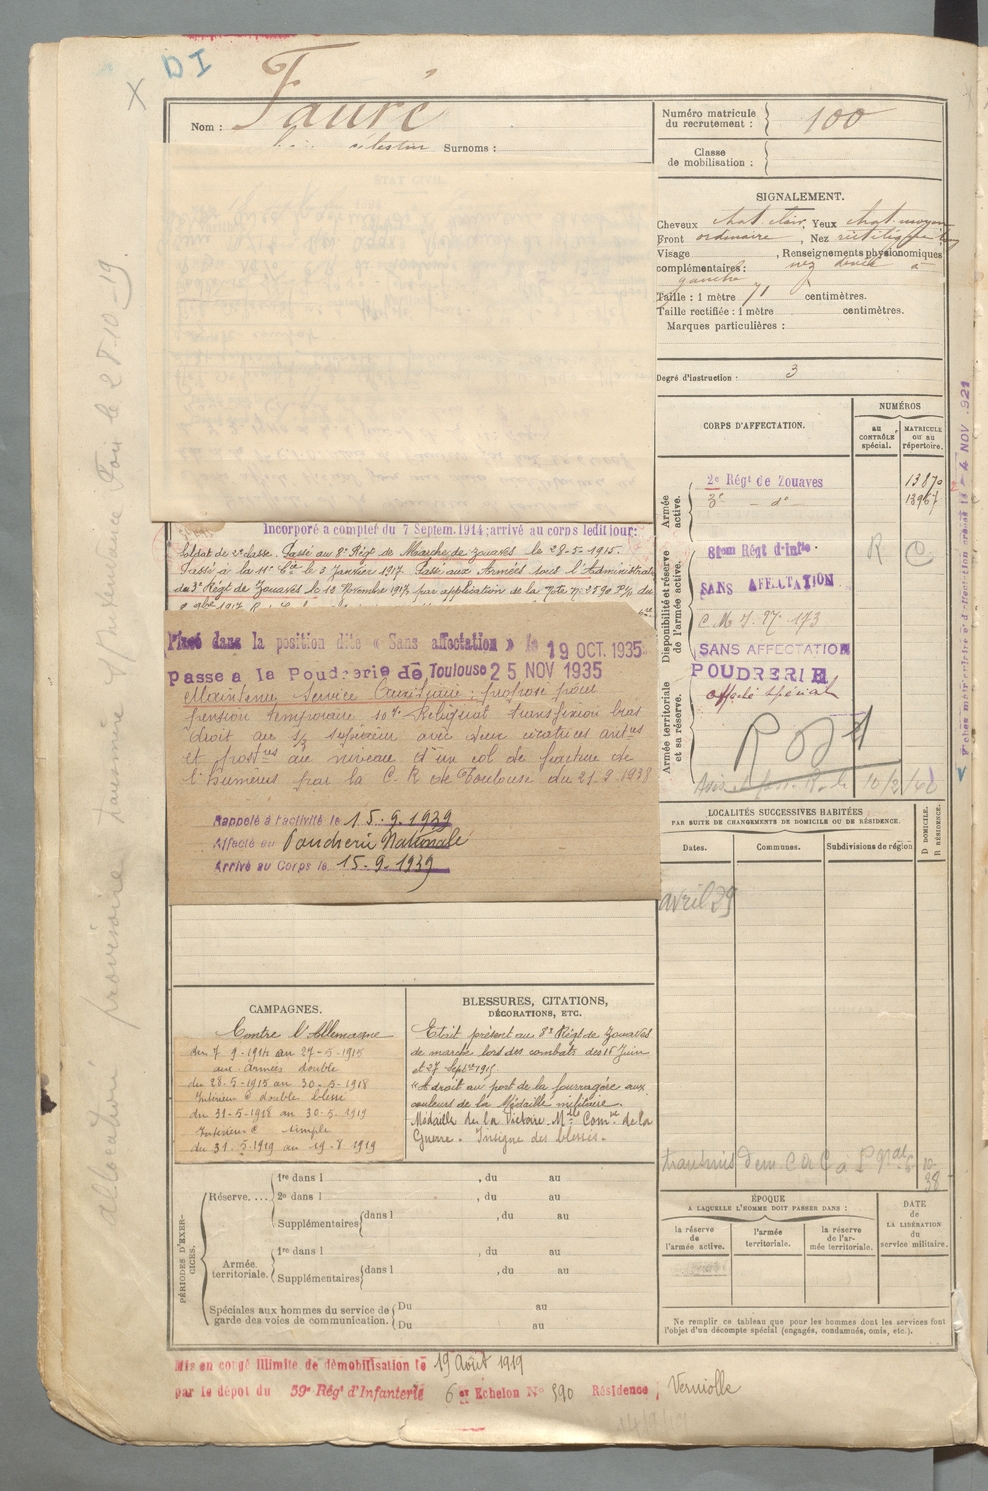 DI
X
Nom : Fauré
célestin Surnoms :
Numéro matricule
du recrutement : 100
Classe
de mobilisation :
SIGNALEMENT.
Cheveux chat. clair, Yeux chat. moyen
Front ordinaire, Nez rectiligne
Visage , Renseignements physionomiques
complémentaires : nez dévié à
gauche
Taille : 1 mètre 71 centimètres.
Taille rectifiée : 1 mètre centimètres.
Marques particulières :
Degré d'instruction : 3
CORPS D'AFFECTATION.
NUMÉROS
au
CONTRÔLE
spécial.
MATRICULE
ou au
répertoire.
Armée
active.
2e Régt de Zouaves 13870
3e - do - 13967
Disponibilité et réserve
de l'armée active.
Régt d'Infie R C
SANS AFFECTATION
SANS AFFECTATION
POUDRERIE
affecté spécial
Armée territoriale
et sa réserve.
10/2/40
Incorporé à compter du 7 Septem. 1914; arrivé au corps ledit jour;
Soldat de 2e classe. Passé au 8e Régt de Marche de zouaves le 28-5-1915.
Passé à la 11e Cie le 3 Janvier 1917. Passé aux Armées sous l'Administrat
du 3e Régt de Zouaves le 10 Novembre 1917 par application de la Note No 2590 du
Placé dans la position dite « Sans affectation » le 19 OCT. 1935
Passé à la Poudrerie de Toulouse 25 NOV 1935
Maintenu Service Auxiliaire; proposé pour
pension temporaire 10% Reliquat transfixion bras
droit au 1/3 supérieur avec deux cicatrices antres
et postres au niveau d'un col de fracture de
l'humérus par la C. R de Toulouse du 21.2.1938
Rappelé à l'activité le 15.9.1939
Affecté au Poudrerie Nationale
Arrivé au Corps le 15.9.1939
LOCALITÉS SUCCESSIVES HABITÉES
PAR SUITE DE CHANGEMENTS DE DOMICILE OU DE RÉSIDENCE.
Dates.
Communes.
Subdivisions de région
D DOMICILE.
R RÉSIDENCE.
avril 29
CAMPAGNES.
Contre l'Allemagne
du 7-9-1914 au 27-5-1915
aux Armées double
du 28-5-1915 au 30-5-1918
Intérieur C double blessé
du 31-5-1918 au 30-5-1919
Intérieur C simple
du 31.5.1919 au 19-8-1919
BLESSURES, CITATIONS,
DÉCORATIONS, ETC.
Etait présent au 8e Régt de Zouaves
de marche lors des combats des 16 Juin
et 27 Septre 1915.
"A droit au port de la fourragère aux
couleurs de la Médaille militaire.
Médaille de la Victoire. Mlle Comve de la
Guerre. Insigne des blessés.
PÉRIODES D'EXER-
CICES.
Réserve....
1re dans l , du au
2e dans l , du au
Supplémentaires dans l , du au
Armée
territoriale.
1re dans l , du au
Supplémentaires dans l , du au
Spéciales aux hommes du service de
garde des voies de communication.
Du au
Du au
ÉPOQUE
A LAQUELLE L'HOMME DOIT PASSER DANS :
la réserve
de
l'armée active.
l'armée
territoriale.
la réserve
de l'ar-
mée territoriale.
DATE
de
LA LIBÉRATION
du
service militaire.
Ne remplir ce tableau que pour les hommes dont les services font
l'objet d'un décompte spécial (engagés, condamnés, omis, etc.).
Mis en congé illimité de démobilisation le 19 Août 1919
par le dépôt du 59e Régt d'Infanterie 6e Echelon No 390 Résidence : Verniolle